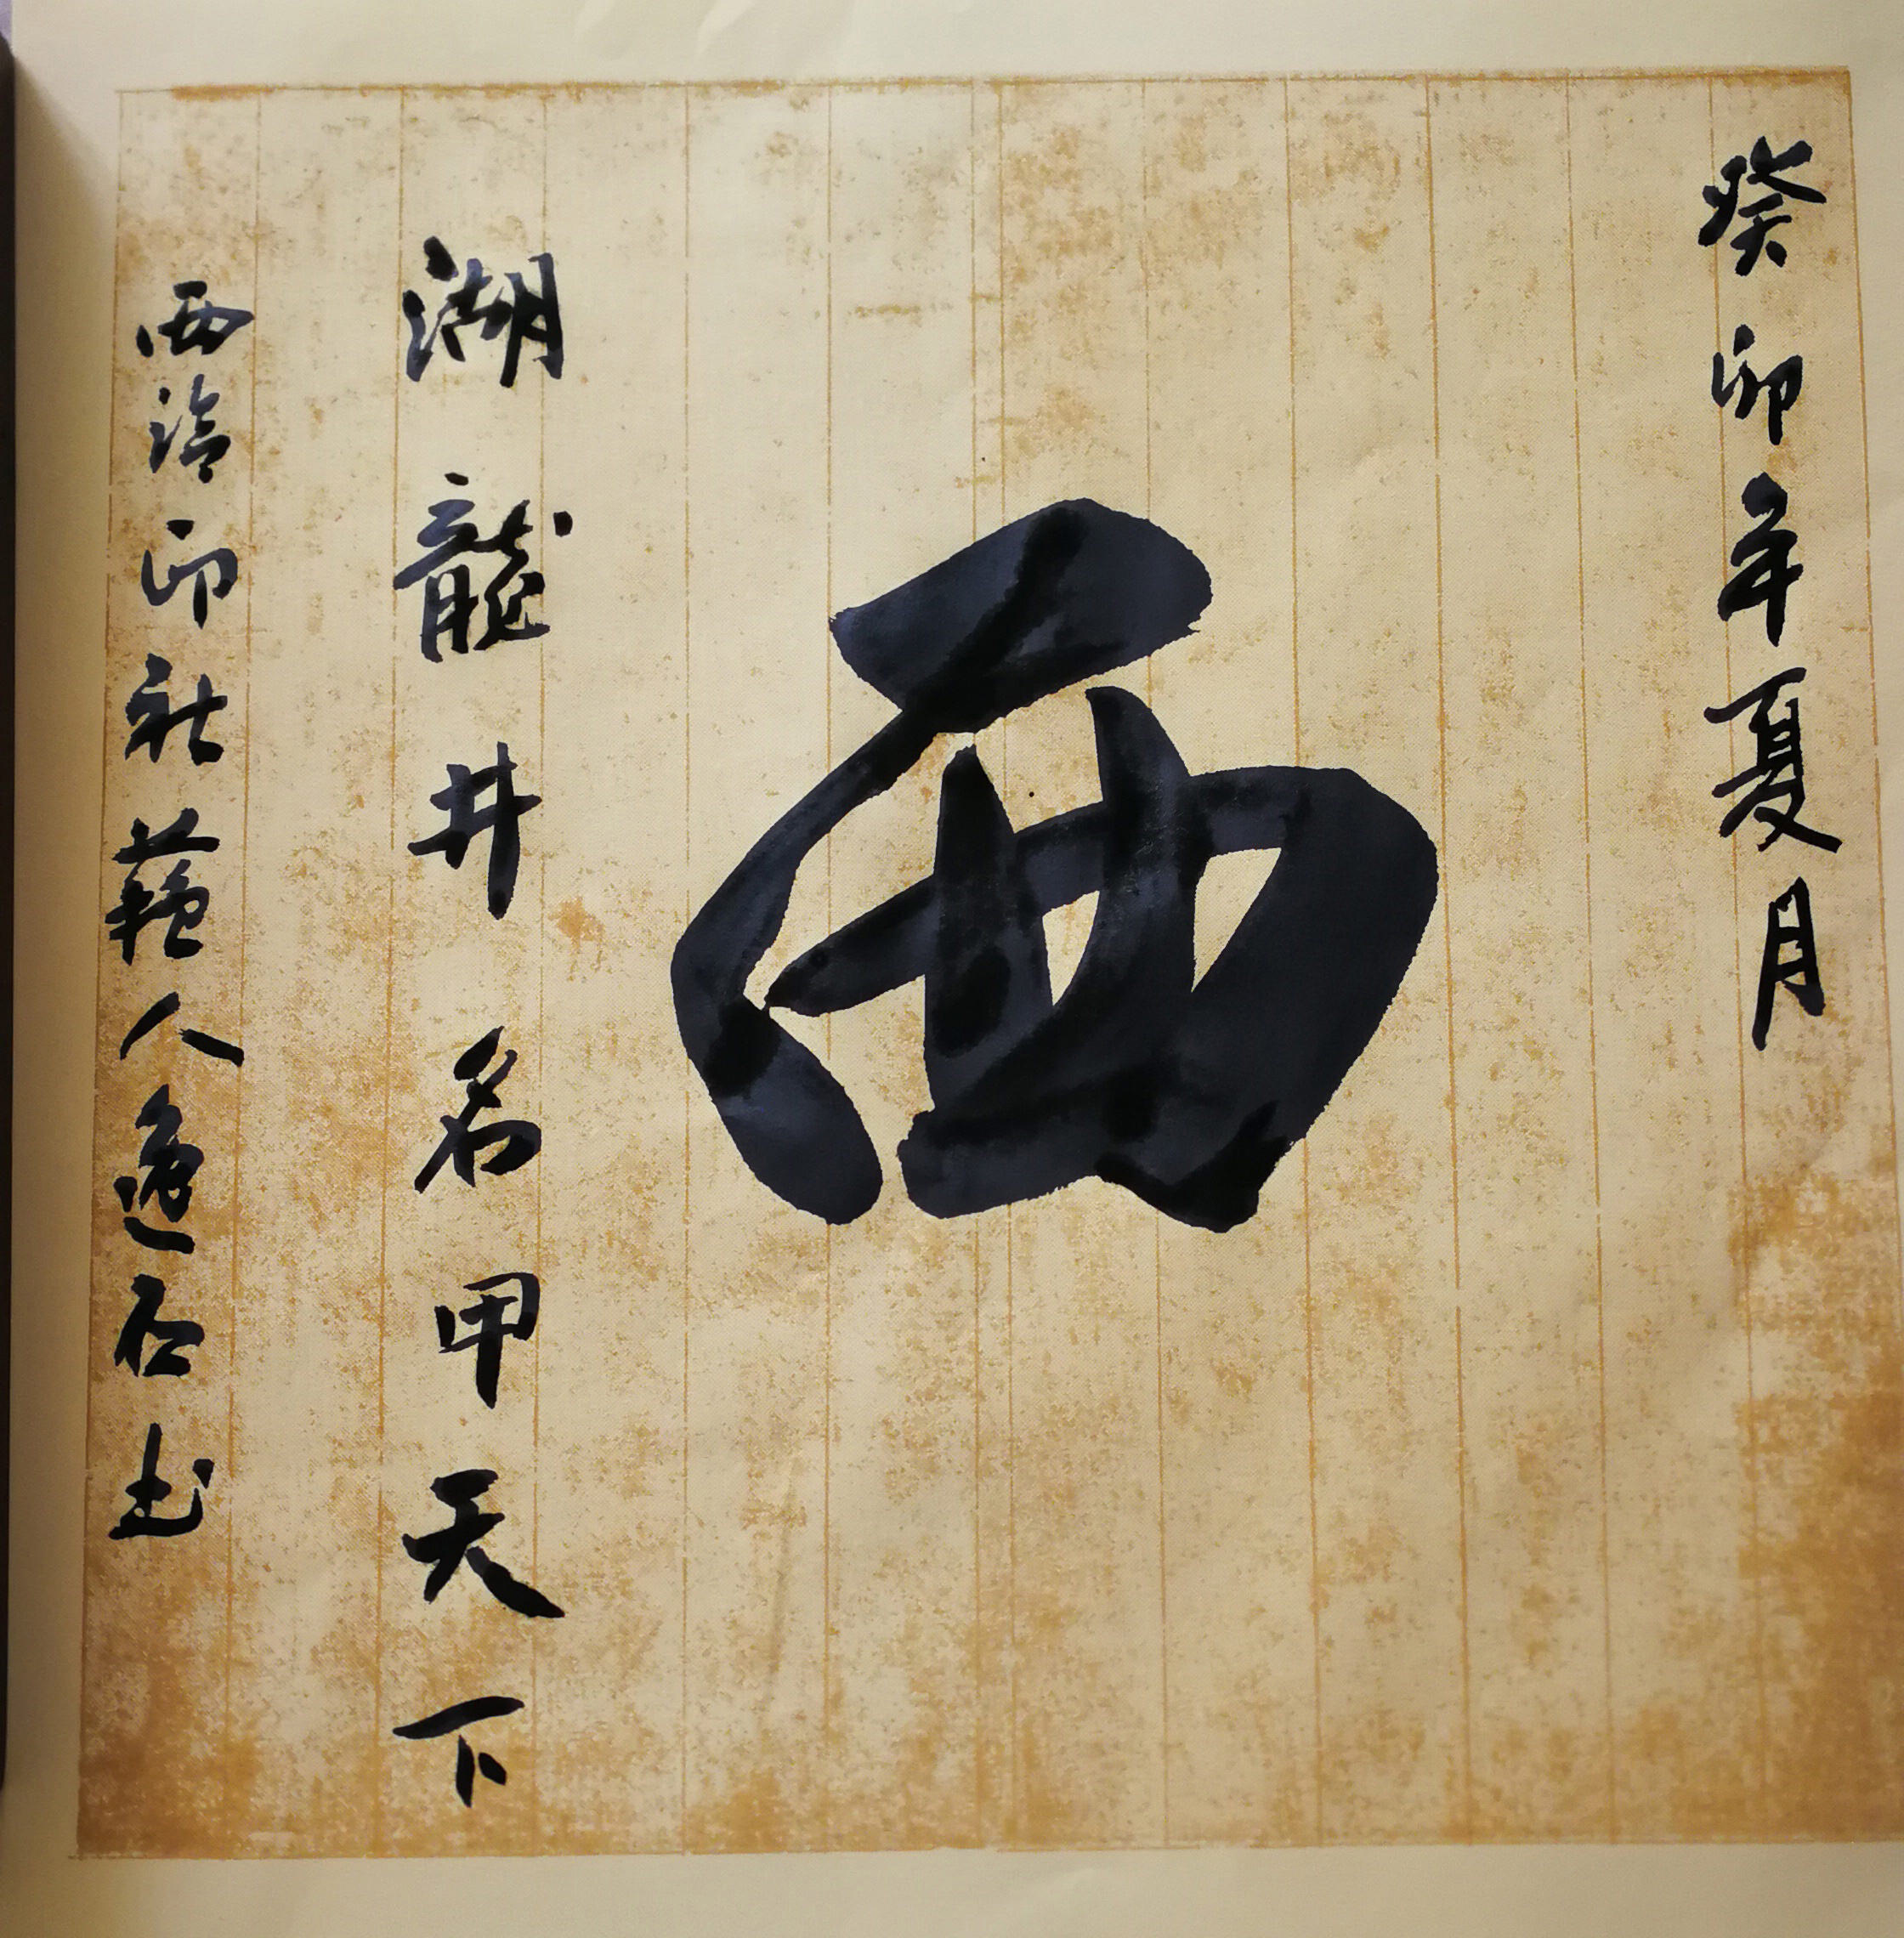 癸卯年夏月
西
湖龍井名甲天下
西泠印社藝人逸石书